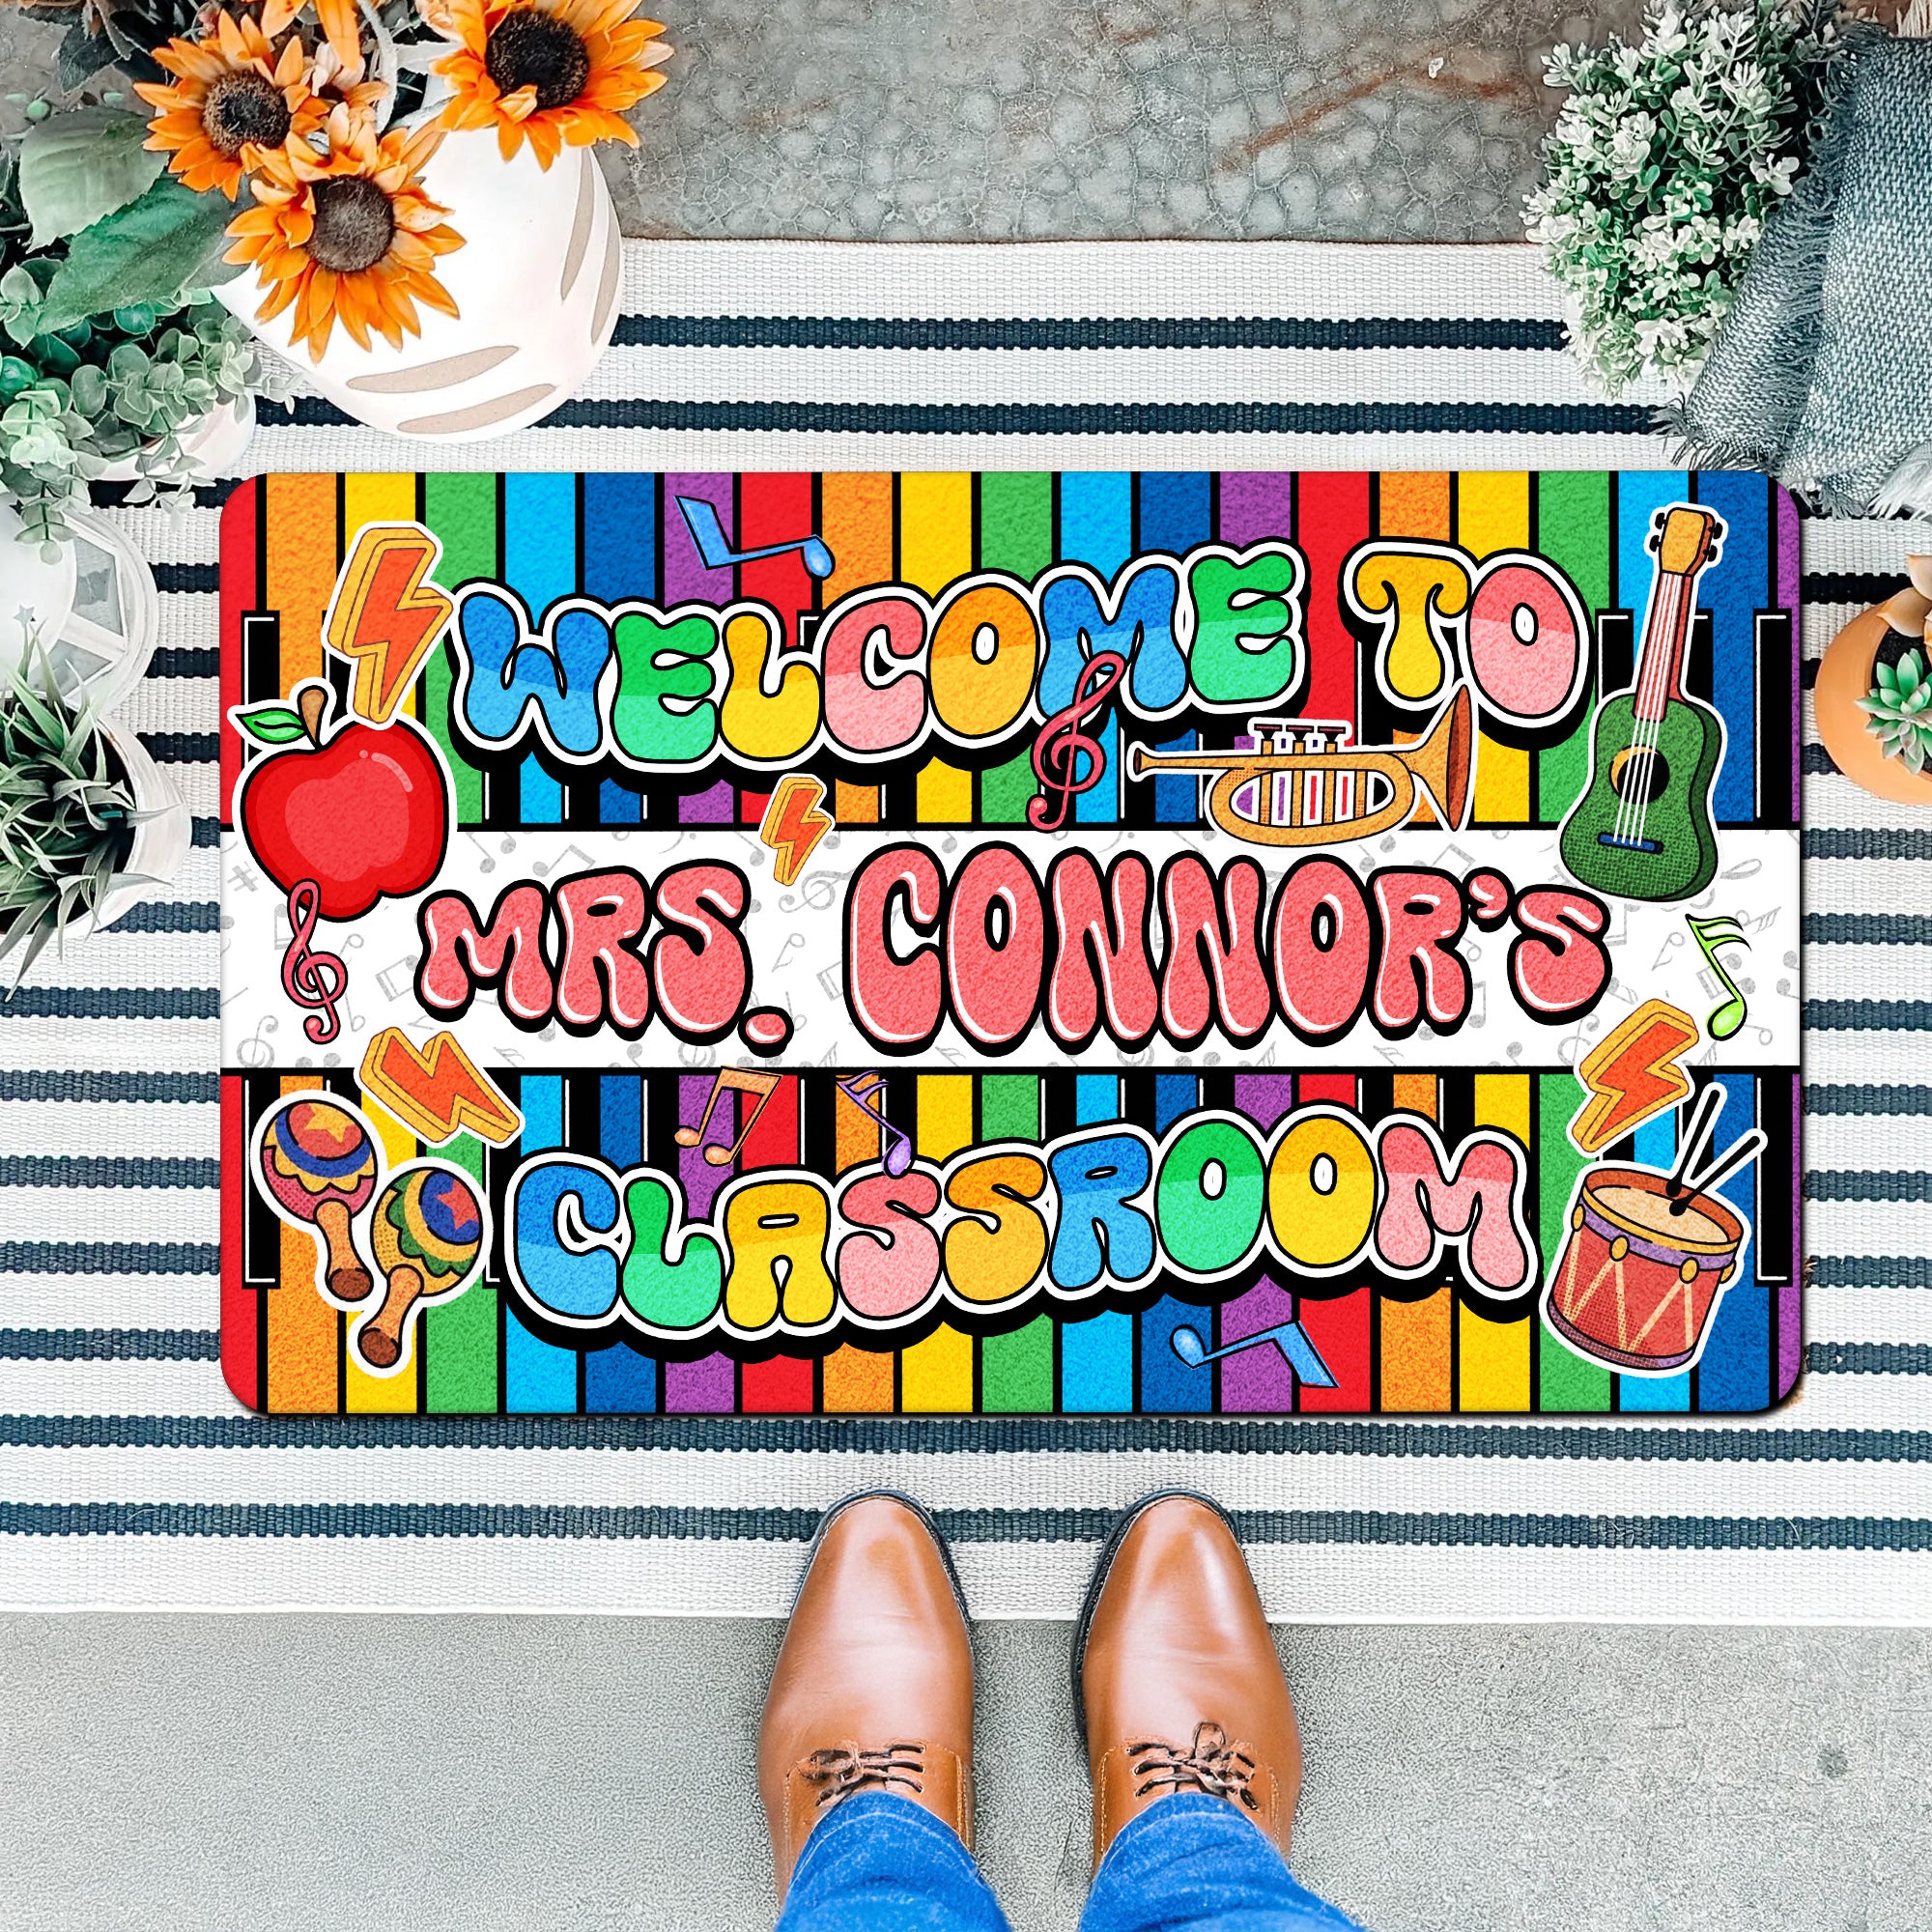 WELCOME TO
MRS. CONNOR'S
CLASSROOM